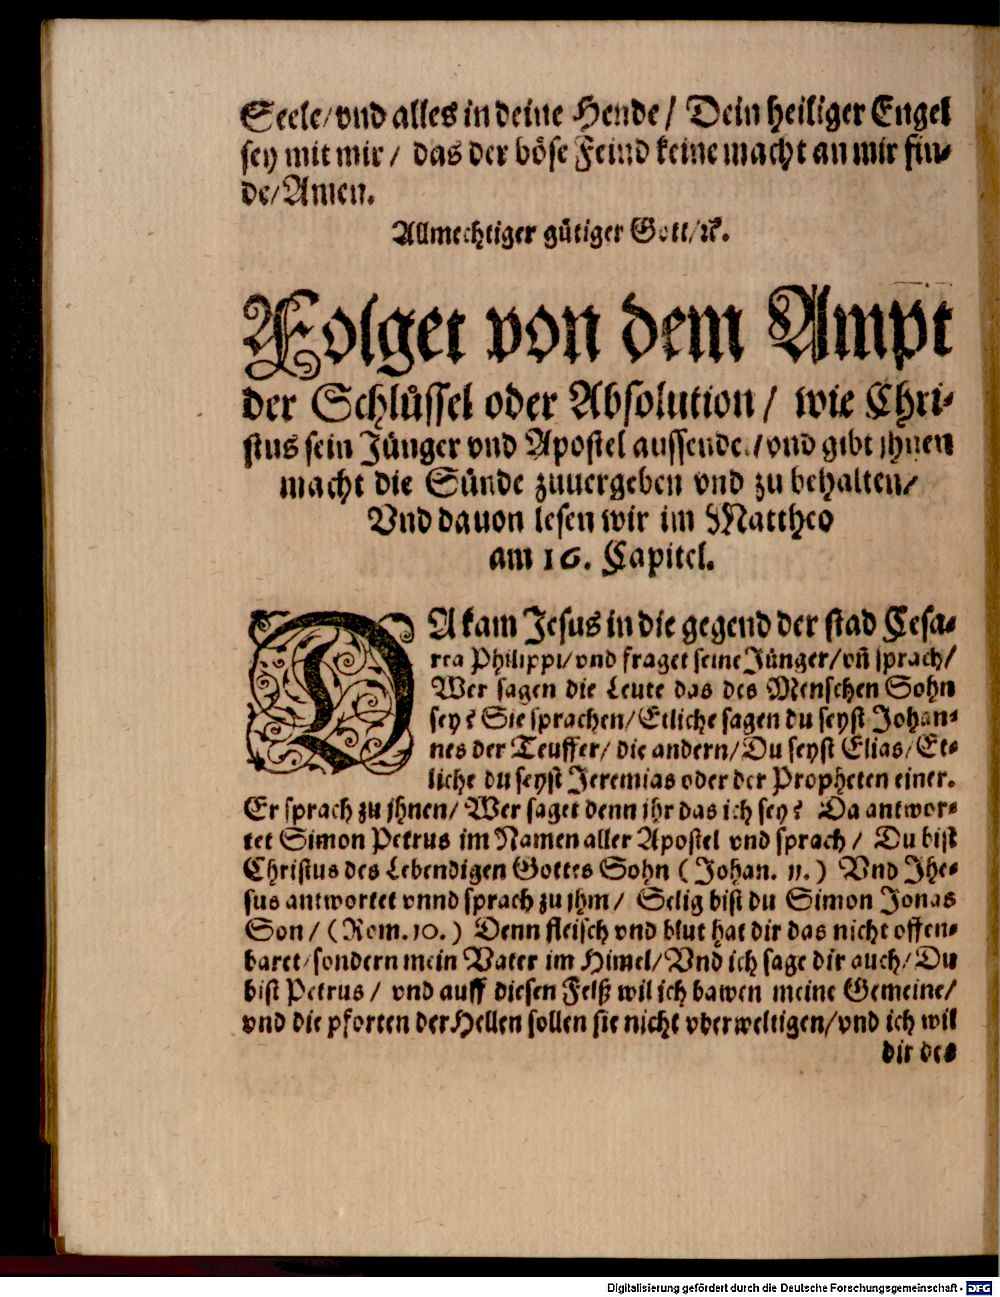 Seele/ vnd alles in deine Hende/ Dein heiliger Engel
sey mit mir/ das der böse Feind keine macht an mir fin-
de/ Amen.
Allmechtiger gütiger Gott/ ꝛc.
Folget von dem Ampt
der Schlůssel oder Absolution/ wie Chri-
stus sein Jünger vnd Apostel aussendet/ vnd gibt jhnen
macht die Sünde zuuergeben vnd zu behalten/
Vnd dauon lesen wir im Mattheo
am 16. Capitel.
DA kam Jesus in die gegend der stad Cesa-
rea Philippi/ vnd fraget seine Jünger/ vñ sprach/
Wer sagen die Leute das des Menschen Sohn
sey? Sie sprachen/ Etliche sagen du seyst Johan-
nes der Teuffer/ die andern/ Du seyst Elias/ Et-
liche du seyst Jeremias oder der Propheten einer.
Er sprach zu jhnen/ Wer saget denn jhr das ich sey? Da antwor-
tet Simon Petrus im Namen aller Apostel vnd sprach/ Du bist
Christus des Lebendigen Gottes Sohn (Johan. 11.) Vnd Jhe-
sus antwortet vnnd sprach zu jhm/ Selig bist du Simon Jonas
Son/ (Rom. 10.) Denn fleisch vnd blut hat dir das nicht offen-
baret/ sondern mein Vater im Himel/ Vnd ich sage dir auch/ Du
bist Petrus/ vnd auff diesen Felß wil ich bawen meine Gemeine/
vnd die pforten der Hellen sollen sie nicht vberweltigen/ vnd ich wil
dir des
Digitalisierung gefördert durch die Deutsche Forschungsgemeinschaft - DFG